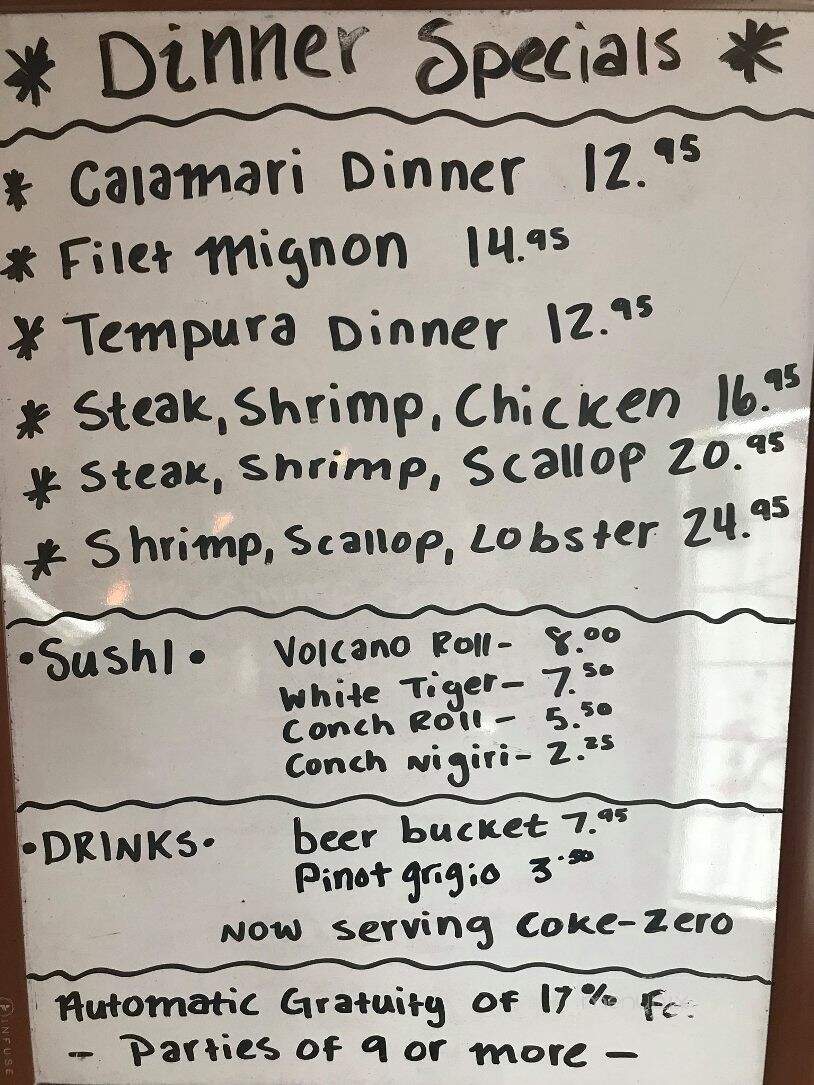 * Dinner Specials *
* Calamari Dinner 12.95
* Filet mignon 14.95
* Tempura Dinner 12.95
* Steak, Shrimp, Chicken 16.95
* Steak, Shrimp, Scallop 20.95
* Shrimp, Scallop, Lobster 24.95
• SushI • Volcano Roll - 8.00
White Tiger - 7.50
Conch Roll - 5.50
Conch Nigiri - 2.25
• DRINKS • beer bucket 7.95
Pinot grigio 3.50
NOW serving Coke-Zero
Automatic Gratuity of 17%
- Parties of 9 or more -
INFUSE